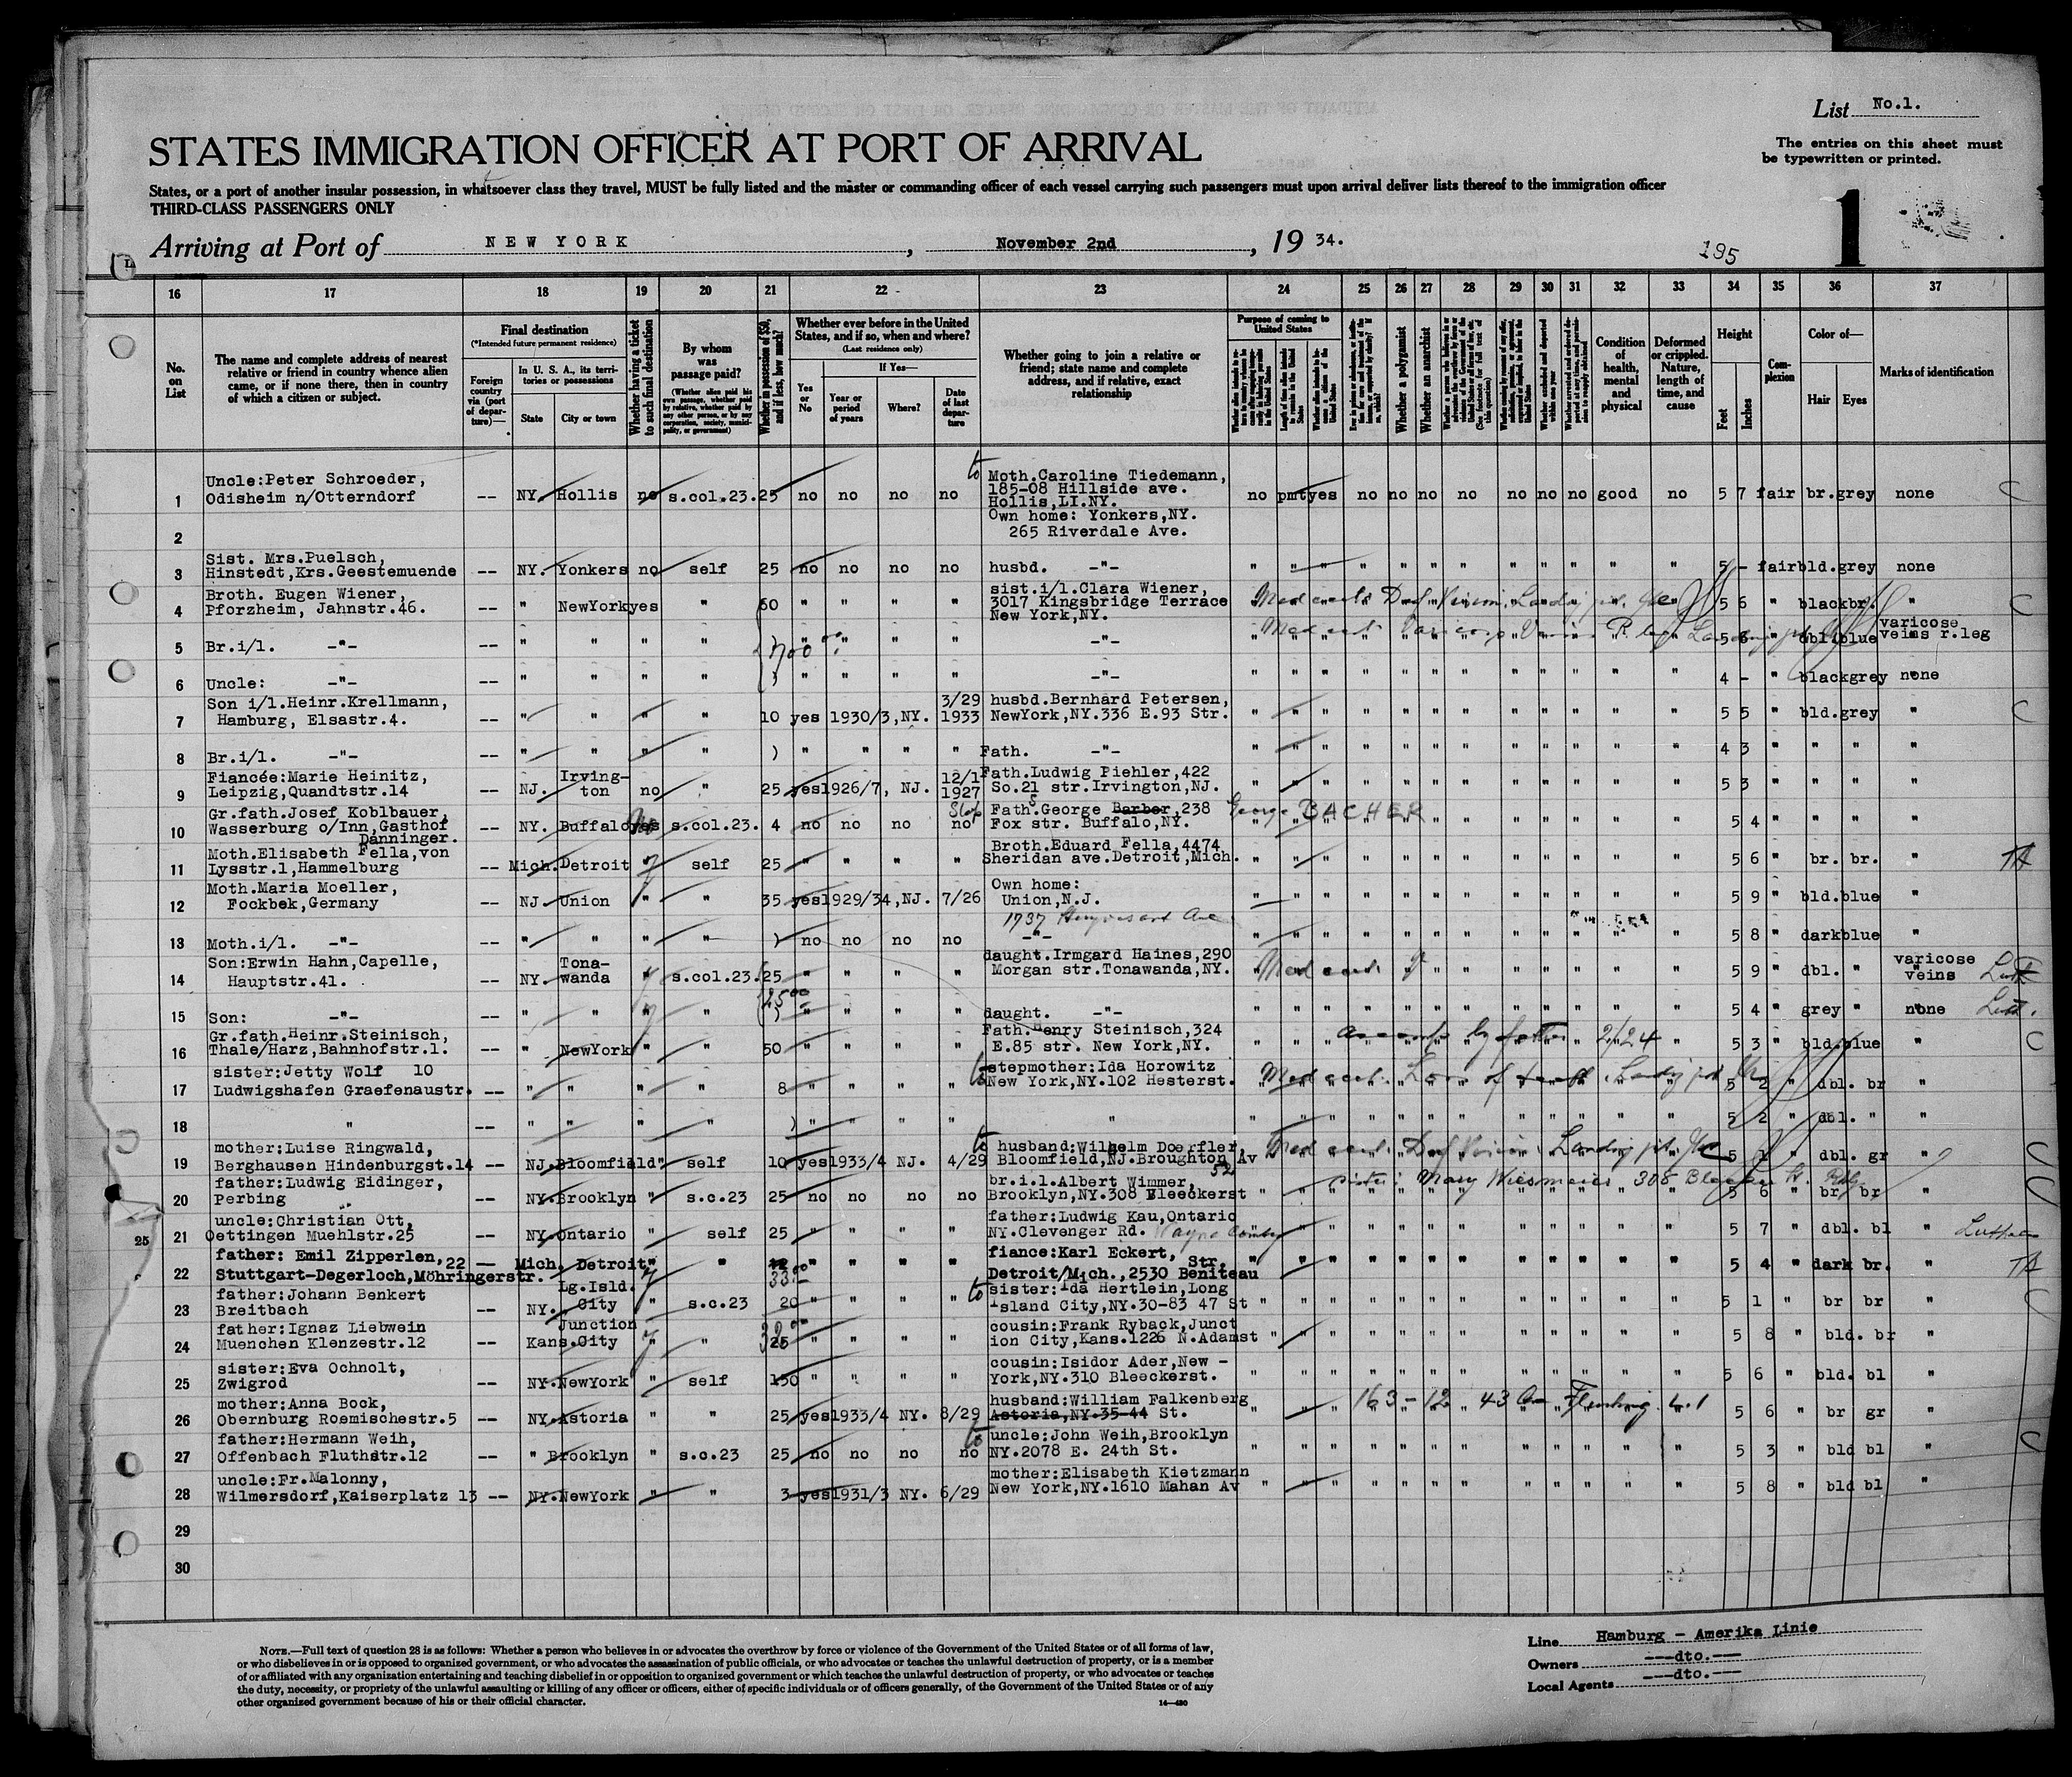 List No.1.
STATES IMMIGRATION OFFICER AT PORT OF ARRIVAL
The entries on this sheet must
be typewritten or printed.
States, or a port of another insular possession, in whatsoever class they travel, MUST be fully listed and the master or commanding officer of each vessel carrying such passengers must upon arrival deliver lists thereof to the immigration officer
THIRD-CLASS PASSENGERS ONLY
1
Arriving at Port of NEW YORK, November 2nd, 19 34.
195
16 17 18 19 20 21 22 23 24 25 26 27 28 29 30 31 32 33 34 35 36 37
No. on List
The name and complete address of nearest relative or friend in country whence alien came, or if none there, then in country of which a citizen or subject.
Final destination
(*Intended future permanent residence)
Foreign country via (port of departure)—
In U. S. A., its territories or possessions
State
City or town
Whether having a ticket to such final destination
By whom was passage paid?
(Whether alien paid his own passage, whether paid by relative, whether paid by any other person, or by any corporation, society, municipality, or government)
Whether in possession of $50, and if less, how much?
Whether ever before in the United States, and if so, when and where?
(Last residence only)
Yes or No
If Yes—
Year or period of years
Where?
Date of last departure
Whether going to join a relative or friend; state name and complete address, and if relative, exact relationship
Purpose of coming to United States
Whether a polygamist
Whether an anarchist
Condition of health, mental and physical
Deformed or crippled. Nature, length of time, and cause
Height
Feet
Inches
Complexion
Color of—
Hair
Eyes
Marks of identification
1 Uncle:Peter Schroeder, Odisheim n/Otterndorf -- NY. Hollis no s.col.23. 25 no no no no to Moth.Caroline Tiedemann, 185-08 Hillside ave. Hollis,LI.NY. no pmt yes no no no no no no no good no 5 7 fair br. grey none C
2 Own home: Yonkers,NY. 265 Riverdale Ave.
3 Sist. Mrs.Puelsch, Hinstedt,Krs.Geestemuende -- NY. Yonkers no self 25 no no no no husbd. -"- " " " " " " " " " " " " 5 - fair bld. grey none
4 Broth. Eugen Wiener, Pforzheim, Jahnstr.46. -- " NewYork yes " 60 " " " " sist.i/l.Clara Wiener, 3017 Kingsbridge Terrace New York,NY. 5 6 " black br. " C
5 Br.i/l. -"- -- " " " " 700 " " " " -"- 5 6 " dbl. blue varicose veins r.leg
6 Uncle: -"- -- " " " " ) " " " " -"- " " " " " " " " " " " " 4 - " black grey none
7 Son i/l.Heinr.Krellmann, Hamburg, Elsastr.4. -- " " " " 10 yes 1930/3,NY. 3/29 1933 husbd.Bernhard Petersen, NewYork,NY.336 E.93 Str. " " " " " " " " " " " " 5 5 " bld. grey " C
8 Br.i/l. -"- -- " " " " ) " " " " Fath. -"- " " " " " " " " " " " " 4 3 " " " "
9 Fiancée:Marie Heinitz, Leipzig,Quandtstr.14 -- NJ. Irvington no " 25 yes 1926/7, NJ. 12/1 1927 Fath.Ludwig Piehler,422 So.21 str.Irvington,NJ. " " " " " " " " " " " " 5 3 " " " "
10 Gr.fath.Josef Koblbauer, Wasserburg o/Inn,Gasthof Danninger. -- NY. Buffalo yes s.col.23. 4 no no no no Fath.George Barber,238 Fox str. Buffalo,NY. George BACHER " " " " " " " " " 5 4 " " " "
11 Moth.Elisabeth Fella,von Lysstr.1,Hammelburg -- Mich. Detroit " self 25 " " " " Broth.Eduard Fella,4474 Sheridan ave.Detroit,Mich. " " " " " " " " " " " " 5 6 " br. br. "
12 Moth.Maria Moeller, Fockbek,Germany -- NJ. Union " " 35 yes 1929/34,NJ. 7/26 Own home: Union,N.J. 1737 " " " " " " " " " " " " 5 9 " bld. blue "
13 Moth.i/l. -"- -- " " " " ) no no no no -"- " " " " " " " " " " " " 5 8 " dark blue "
14 Son:Erwin Hahn,Capelle, Hauptstr.41. -- NY. Tonawanda " s.col.23. 25 " " " " daught.Irmgard Haines,290 Morgan str.Tonawanda,NY. Med cert. 5 9 " dbl. " varicose veins
15 Son: -"- -- " " " " 2500 ) " " " " daught. -"- " " " " " " " " " " " " 5 4 " grey " none
16 Gr.fath.Heinr.Steinisch, Thale/Harz,Bahnhofstr.1. -- " NewYork " " 50 " " " " Fath.Henry Steinisch,324 E.85 str. New York,NY. by father 5 3 " bld. blue " C
17 sister:Jetty Wolf 10 Ludwigshafen Graefenaustr. -- " " " " 8 " " " " to stepmother:Ida Horowitz New York,NY.102 Hesterst. Med cert. Loss of teeth 5 2 " dbl. br "
18 " -- " " " " ) " " " " " " " " " " " " " " " " " " 5 2 " dbl. " "
19 mother:Luise Ringwald, Berghausen Hindenburgst.14 -- NJ. Bloomfield " self 10 yes 1933/4 NJ. 4/29 to husband:Wilhelm Doerfler, Bloomfield,NJ.Broughton Av 52 Med cert. 5 1 " dbl. gr " C
20 father:Ludwig Eidinger, Perbing -- NY. Brooklyn " s.c.23 25 no no no no br.i.l.Albert Wimmer, Brooklyn,NY.308 Bleeckerst sister: Mary Wiesmeier 308 5 6 " br br " C
25
21 uncle:Christian Ott, Oettingen Muehlstr.25 NY. Ontario " self 25 " " " " father:Ludwig Kau,Ontario NY.Clevenger Rd. Wayne County " " " " " " " " " " " 5 7 " dbl. bl "
22 father: Emil Zipperlen,22 Stuttgart-Degerloch,Möhringerstr. -- Mich. Detroit " " 33 " " " " fiance:Karl Eckert, Str. Detroit/Mich.,2530 Beniteau " " " " " " " " " " " " 5 4 " dark br. "
23 father:Johann Benkert Breitbach -- NY. Lg.Isld. City " s.c.23 20 " " " " to sister:Ida Hertlein,Long Island City,NY.30-83 47 St " " " " " " " " " " " " 5 1 " br br " C
24 father:Ignaz Liebwein Muenchen Klenzestr.12 -- Kans. Junction City " " 25 " " " " cousin:Frank Ryback,Junct ion City,Kans.1226 N.Adamst " " " " " " " " " " " " 5 8 " bld. br "
25 sister:Eva Ochnolt, Zwigrod -- NY. NewYork " self 150 " " " " cousin:Isidor Ader,New - York,NY.310 Bleeckerst. " " " " " " " " " " " " 5 6 " bld. bl "
26 mother:Anna Bock, Obernburg Roemischestr.5 -- NY. Astoria " " 25 yes 1933/4 NY. 8/29 husband:William Falkenberg Astoria,NY.35-44 St. 163-12 43 Flushing L.I 5 6 " br gr "
27 father:Hermann Weih, Offenbach Fluthstr.12 -- " Brooklyn " s.c.23 25 no no no no to uncle:John Weih,Brooklyn NY.2078 E. 24th St. " " " " " " " " " " " " 5 3 " bld bl " C
28 uncle:Fr.Malonny, Wilmersdorf,Kaiserplatz 13 -- NY. NewYork " " 3 yes 1931/3 NY. 6/29 mother:Elisabeth Kietzmann New York,NY.1610 Mahan Av " " " " " " " " " " " " 5 8 " bld bl "
29
30
NOTE.—Full text of question 28 is as follows: Whether a person who believes in or advocates the overthrow by force or violence of the Government of the United States or of all forms of law,
or who disbelieves in or is opposed to organized government, or who advocates the assassination of public officials, or who advocates or teaches the unlawful destruction of property, or is a member
of or affiliated with any organization entertaining and teaching disbelief in or opposition to organized government or which teaches the unlawful destruction of property, or who advocates or teaches
the duty, necessity, or propriety of the unlawful assaulting or killing of any officer or officers, either of specific individuals or of officers generally, of the Government of the United States or of any
other organized government because of his or their official character.
14—430
Line Hamburg - Amerika Linie
Owners ---dto.---
Local Agents ---dto.---